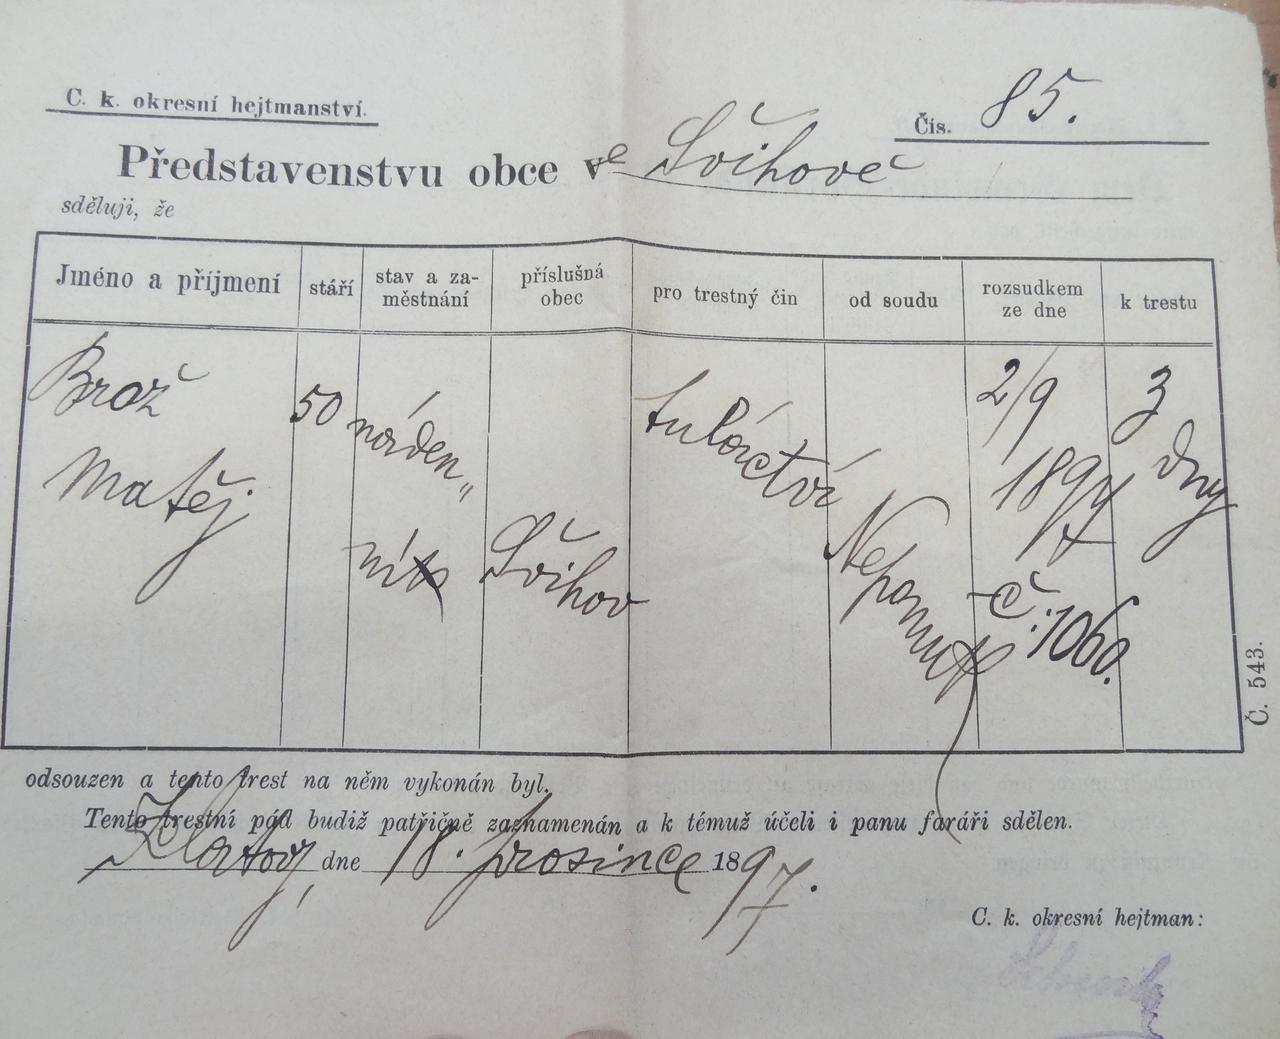 C. k. okresní hejtmanství.
Čís. 85.
Představenstvu obce ve Švihově
sděluji, že
Jméno a příjmení
stáří
stav a za-
městnání
příslušná
obec
pro trestný čin
od soudu
rozsudkem
ze dne
k trestu
Brož
Matěj
50
náden„
ník
Švihov
tuláctví
Nepomuk
2/9
1897
č: 1060.
3
dny
odsouzen a tento trest na něm vykonán byl.
Tento trestní pád budiž patřičně zaznamenán a k témuž účeli i panu faráři sdělen.
Klatovy, dne 18. prosince 1897.
C. k. okresní hejtman:
Č. 543.